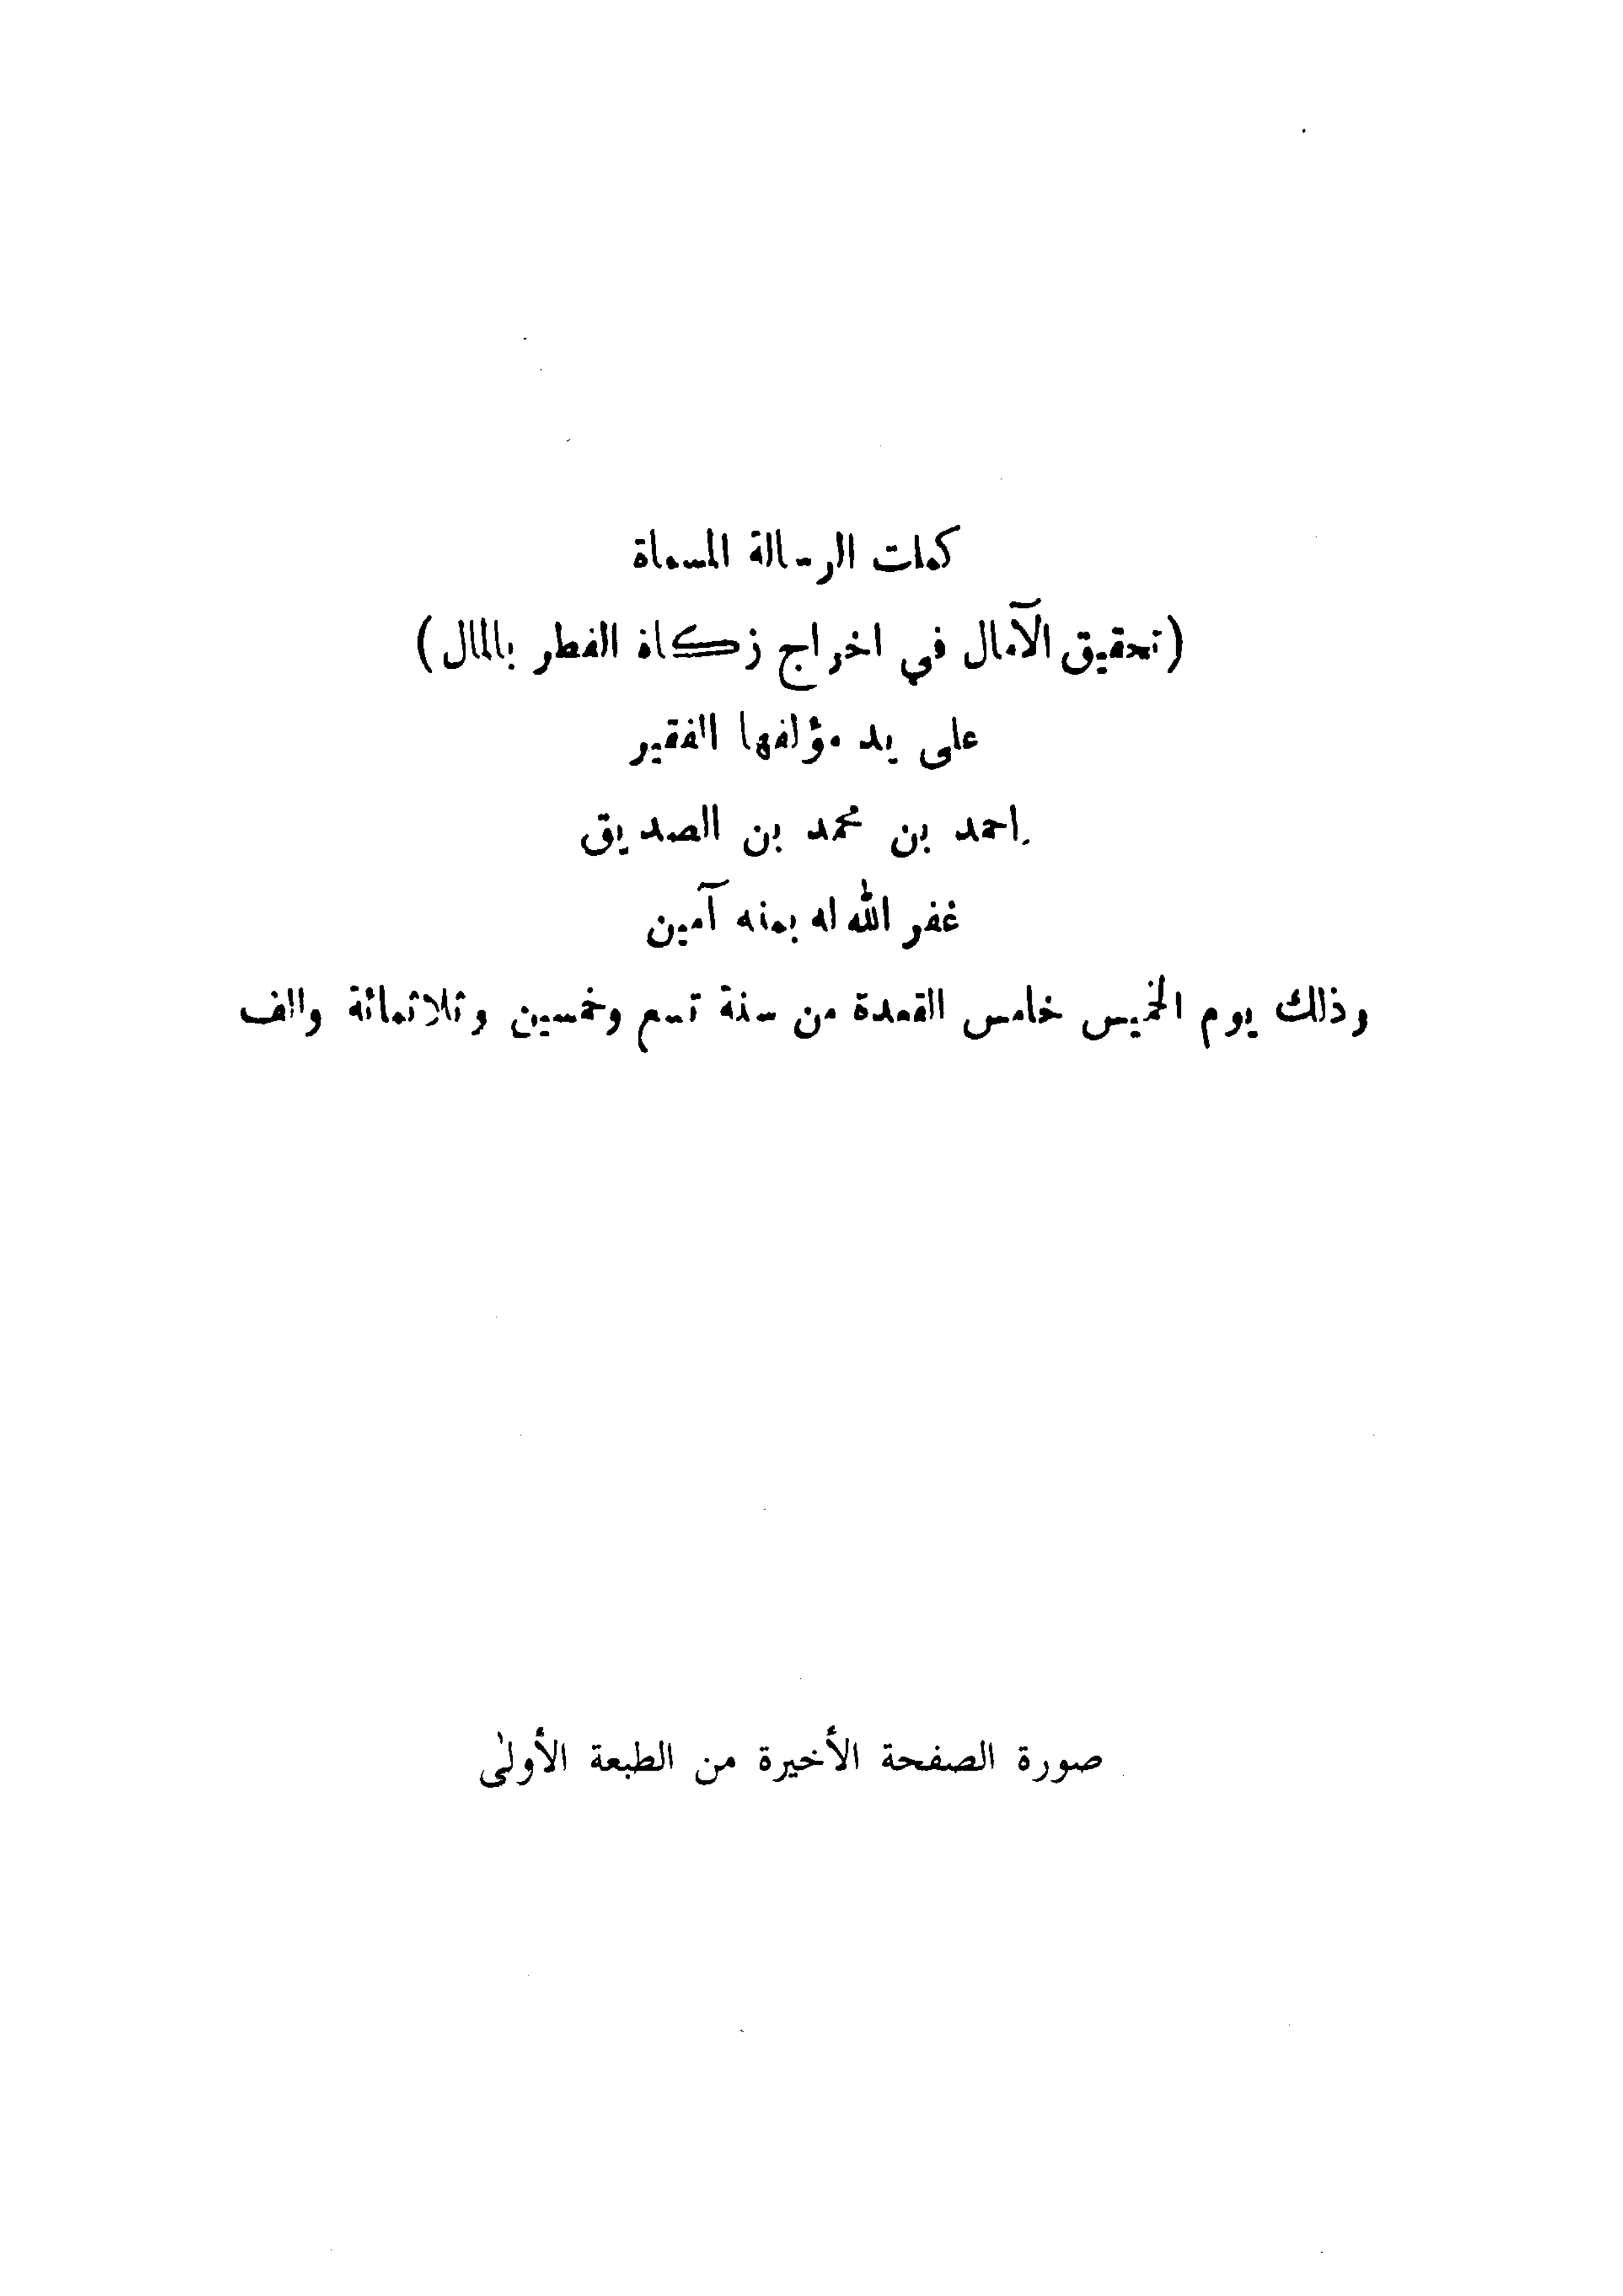 كملت الرسالة المسماة
(تحقيق الآمال في اخراج زكاة الفطر بالمال)
على يد مؤلفها الفقير
احمد بن محمد بن الصديق
غفر الله له بمنه آمين
وذلك يوم الخميس خامس القعدة من سنة تسع وخمسين وثلاثمائة والف
صورة الصفحة الأخيرة من الطبعة الأولى